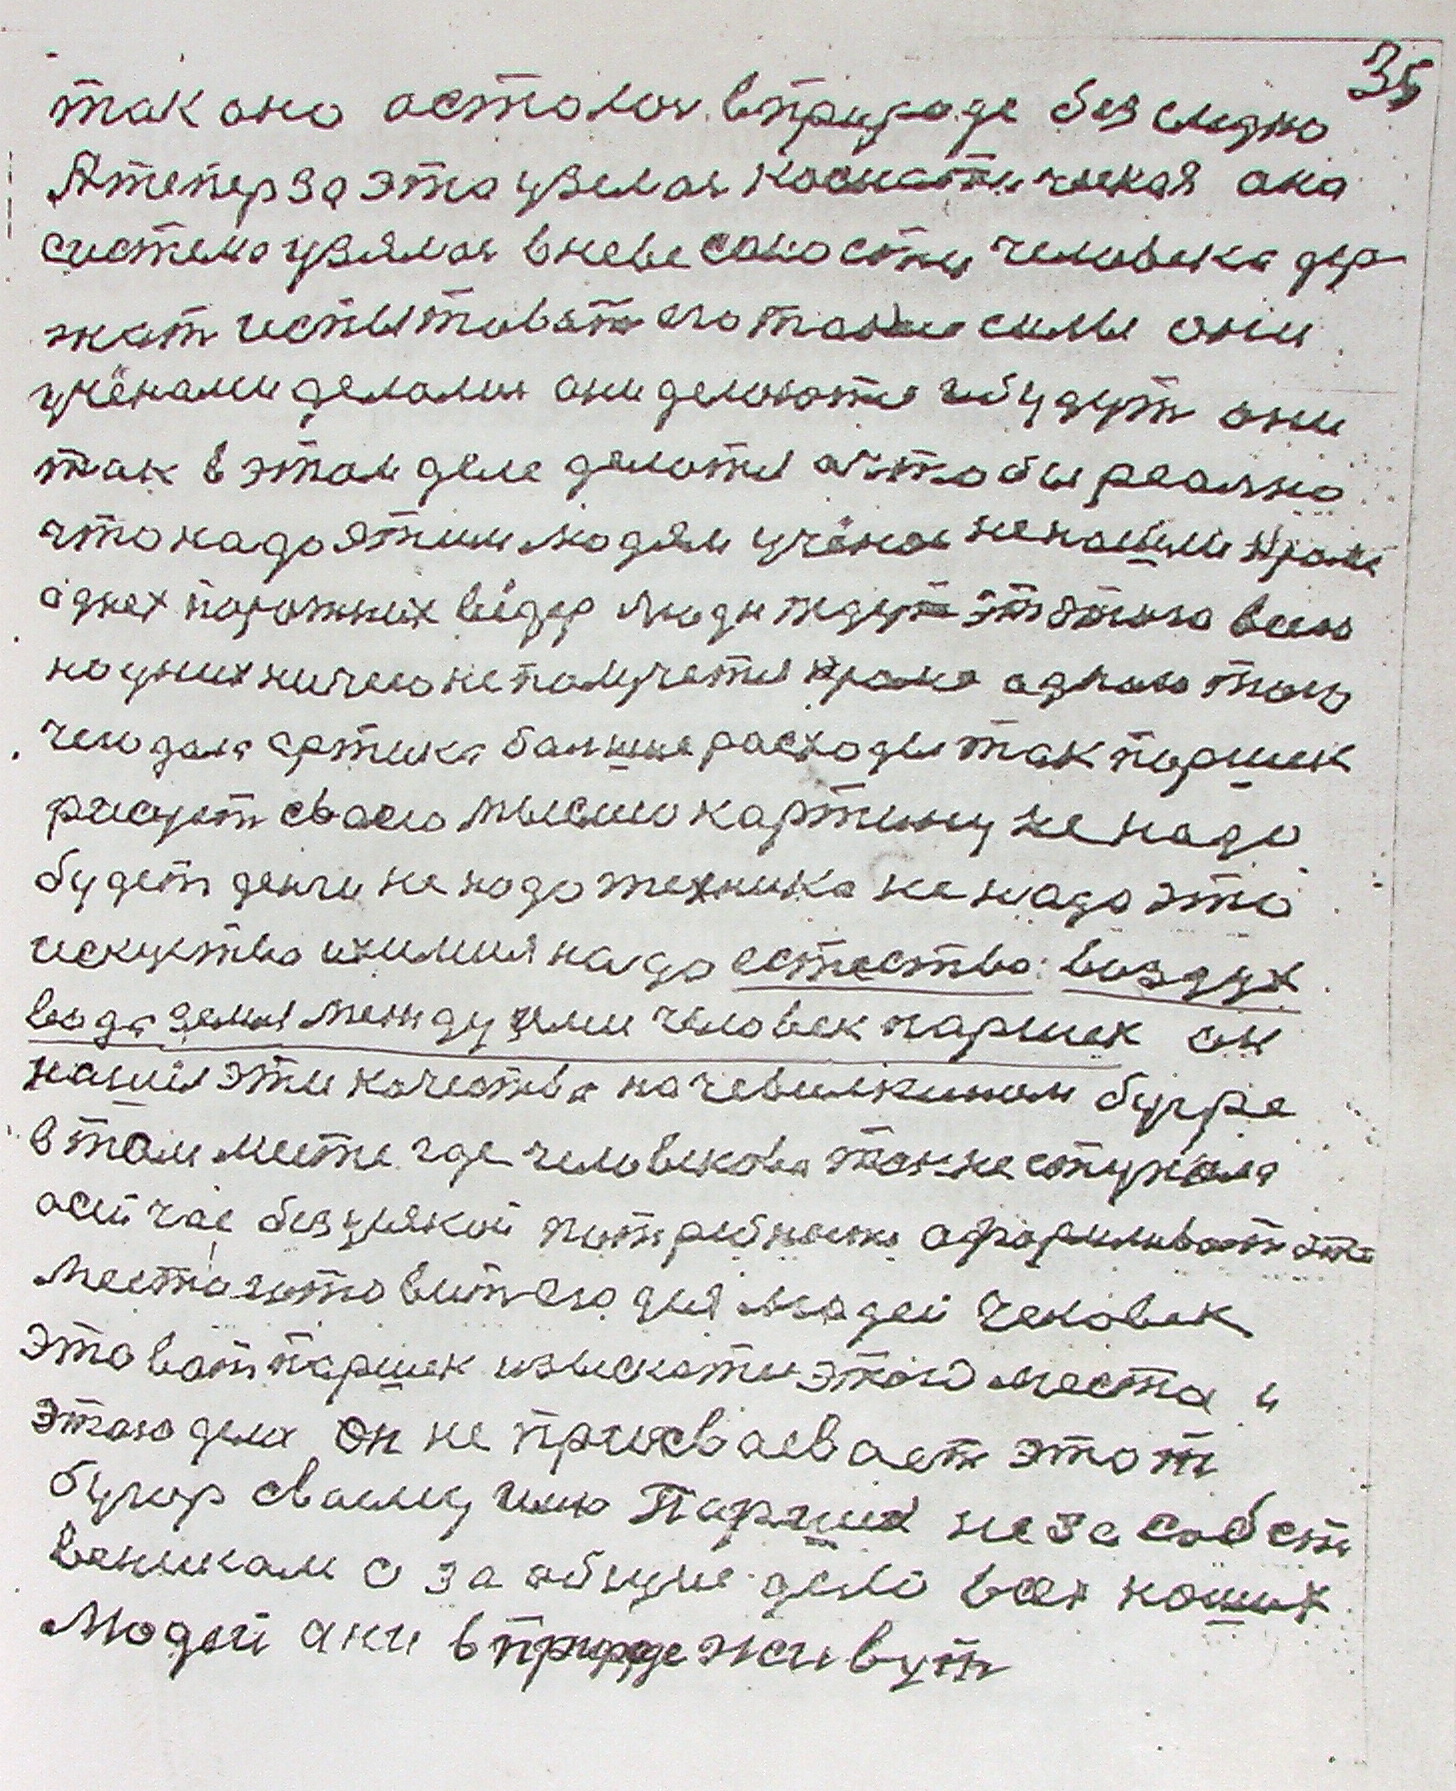 35
так оно осталос вприроде безследно
Атеперза эта узелас космастическая ана
система узялас вневесомости человека дер
жат испытыват его такие силы они
учёнами делалис они делаются ибудут они
так в этам деле делатся ачтобы реално
чтонадо этим людям учёнае ненашли кроме
аднех порожних вёдер люди ждут от этого всего
но уних ничего неполучется кроме аднаго таго
чего дала артика балшие расходы так паршек
рисует сваею мыслию картину не надо
будет денги не надо техника не надо это
искуство ихимия надо естество: воздух
вода земля между ими человек паршек он
нашол эти качества начевилкинам бугре
втам месте где человекова нога неступала
асейчас без усякой потребности аформливает это
место готовит его для людей человек
это ват паршек изыскател этого места и
этого дела он не присваевает этот
бугор сваему имю Паршек неза собст
веникам а за общие дело всех наших
людей ани в природе живут